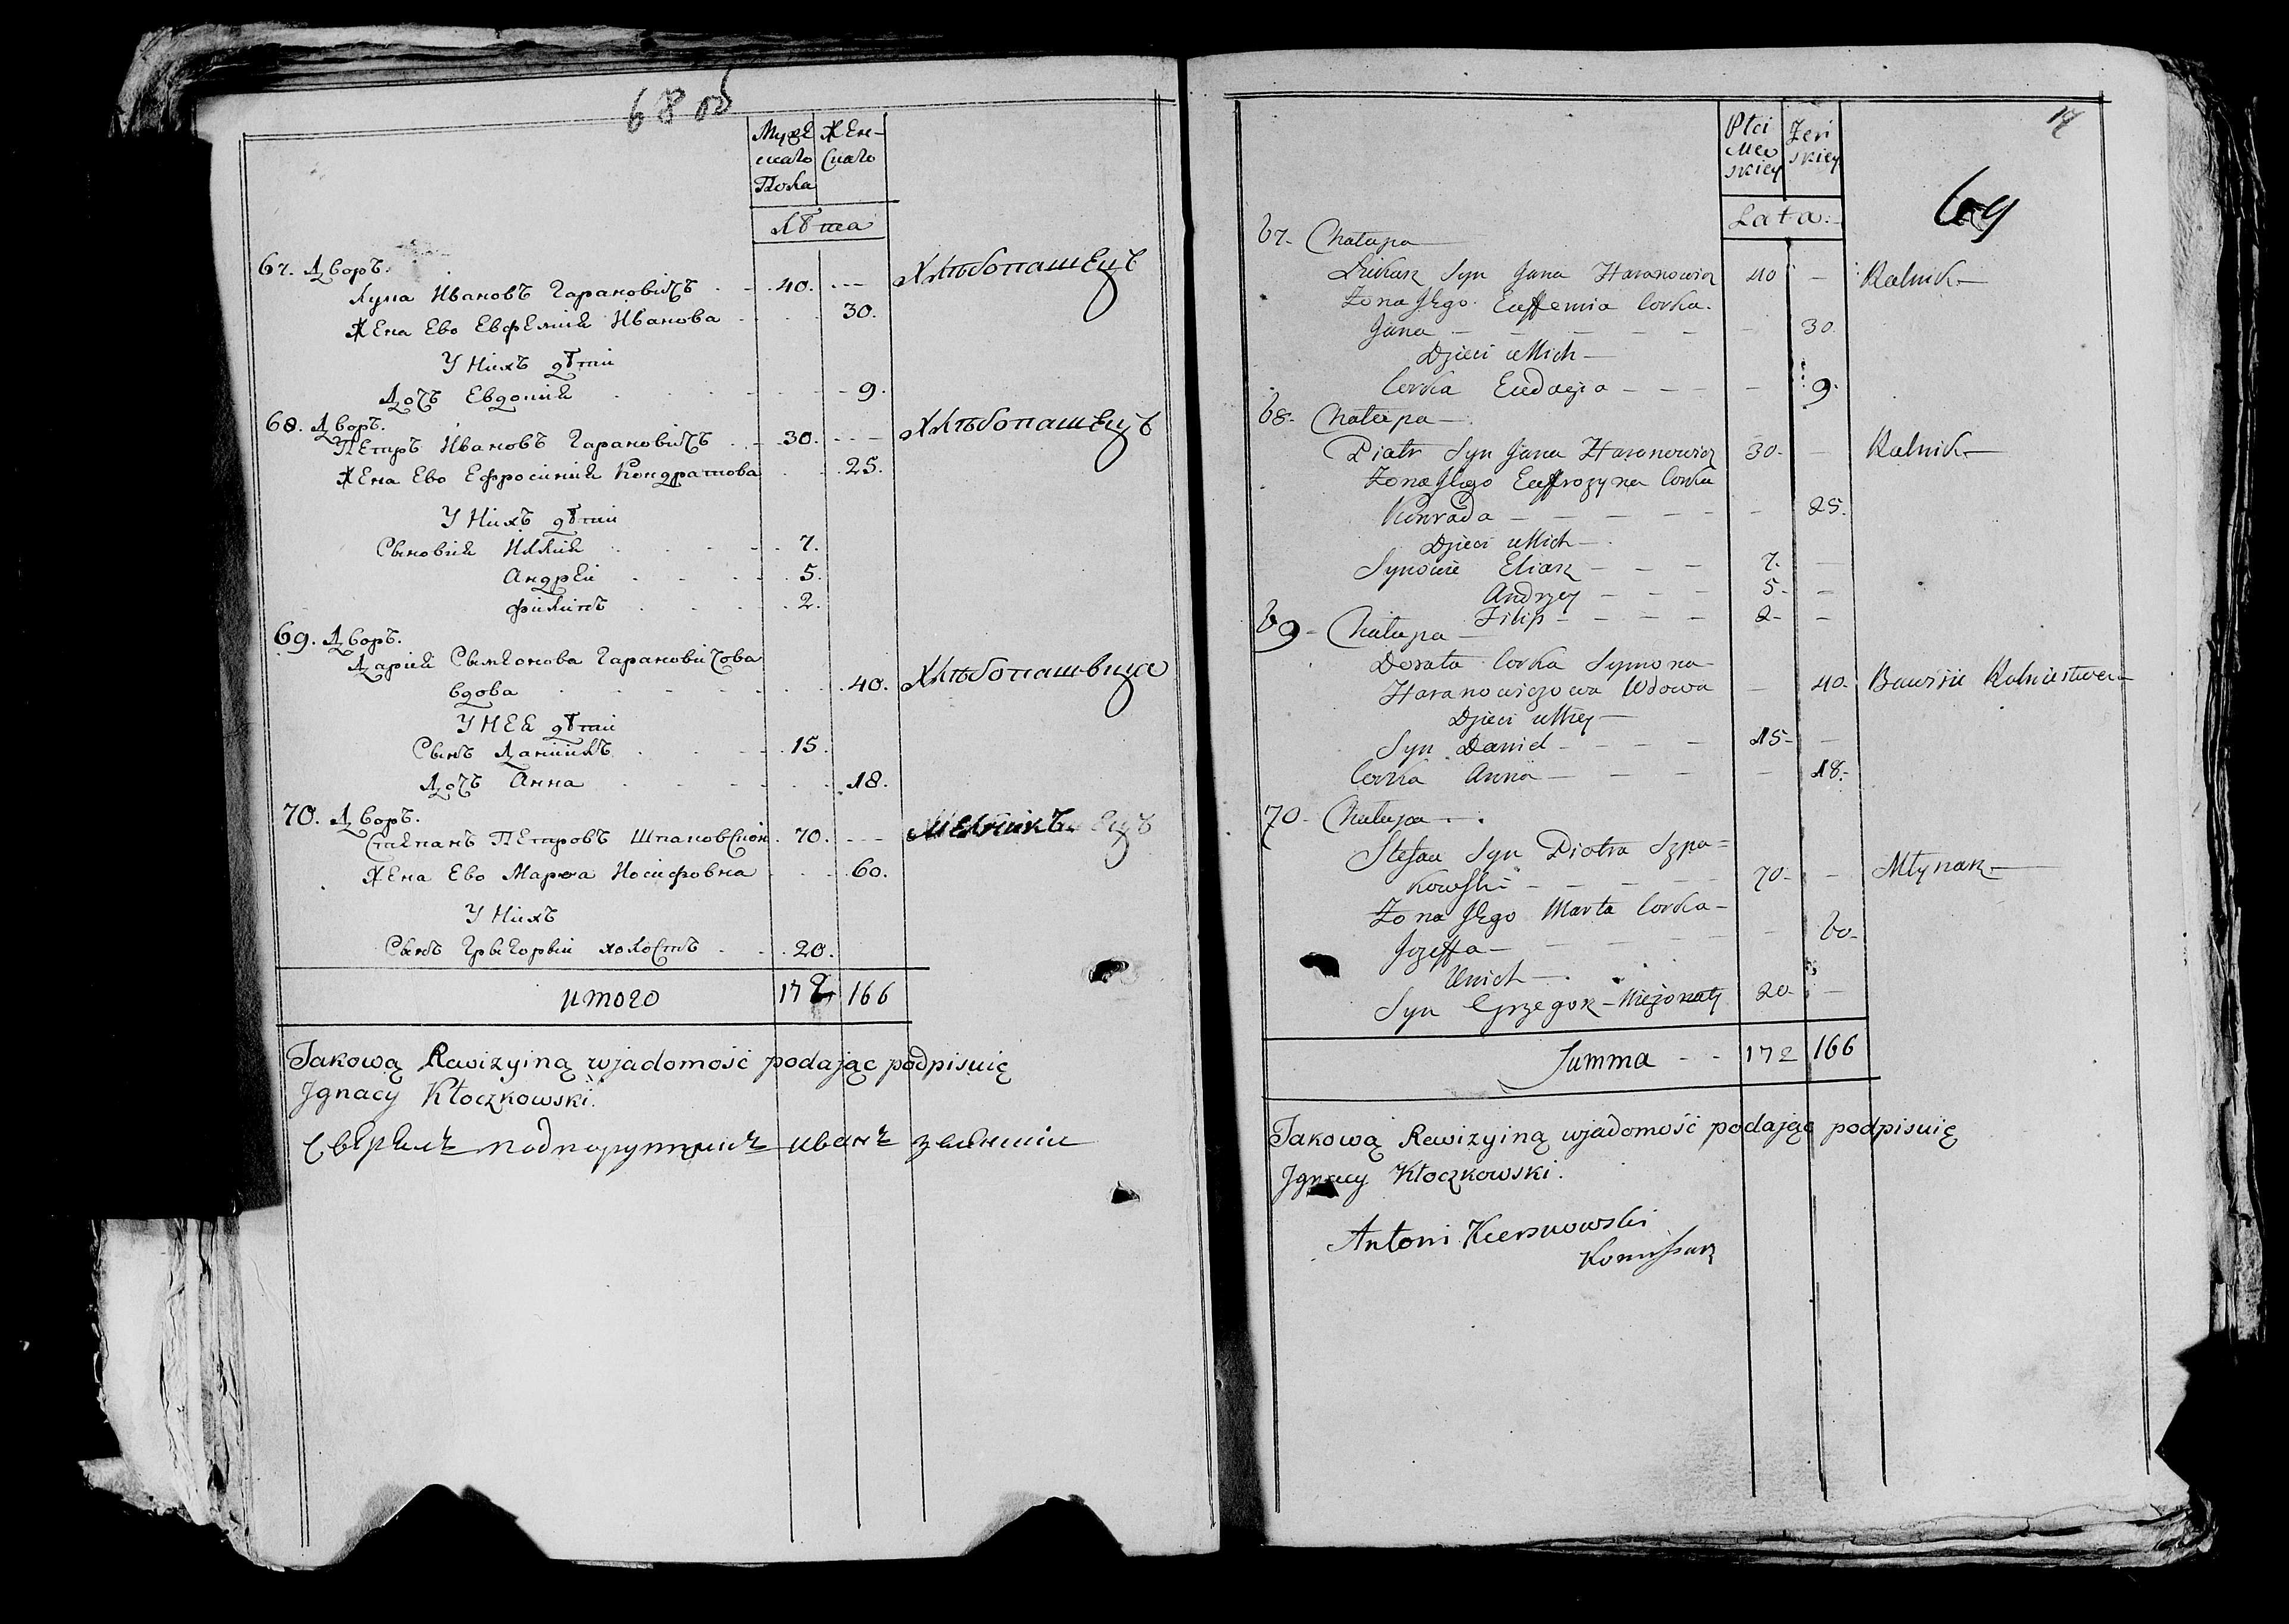 68 об
Мужескаго Пола
Женскаго
лѣта
67. Дворъ.
Лука Ивановъ Гарановичъ 40. Хлѣбопашецъ
Жена Ево Евфемия Иванова 30.
У Нихъ дѣти
Дочь Евдокия 9.
68. Дворъ.
Петръ Ивановъ Гарановичъ 30. Хлѣбопашецъ
Жена Ево Ефросиния Кондратова 25.
У Нихъ дѣти
Сыновия Илия 7.
Андрей 5.
Филипъ 2.
69. Дворъ.
Дария Сымонова Гарановичова
вдова 40. Хлѣбопашвица
У Нея дѣти
Сынъ Даниилъ 15.
Дочь Анна 18.
70. Дворъ.
Стяпанъ Петровъ Шпаковской 70. Мелникъ
Жена Ево Марѳа Иосифовна 60.
У Нихъ
Сынъ Грыгорый холостъ 20.
итого 172 166
Takową Rewizyiną wjadomość podając podpisuię
Jgnacy Kłoczkowski.
Свѣрялъ подпорутчикъ иванъ
17
69
Płci Męskiey
Żeńskiey
Lata
67. Chałupa
Łukasz Syn Jana Haranowicz 40 — Rolnik
Żona Jego Euffemia Corka
Jana 30.
Dzieci u Nich
Corka Eudozia 9.
68. Chałupa
Piotr Syn Jana Haranowicz 30 — Rolnik
Żona Jego Euffrozyna Corka
Konrada 25.
Dzieci u Nich
Synowie Eliasz 7.
Andrzey 5.
Filip 2
69. Chałupa
Dorota Corka Symona
Haranowiczowa Wdowa 40. Bawi się Rolnictwem
Dzieci u Niey
Syn Daniel 15
Corka Anna 18.
70. Chałupa
Stefan Syn Piotra Szpa=
kowski 70 Młynarz
Żona Jego Marta Corka
Jozeffa 60
U nich
Syn Grzegorz Nieżonaty 20
Summa 172 166
Takową Rewizyiną wjadomość podając podpisuię
Jgnacy Kłoczkowski.
Antoni Kiersnowski
Komissarz